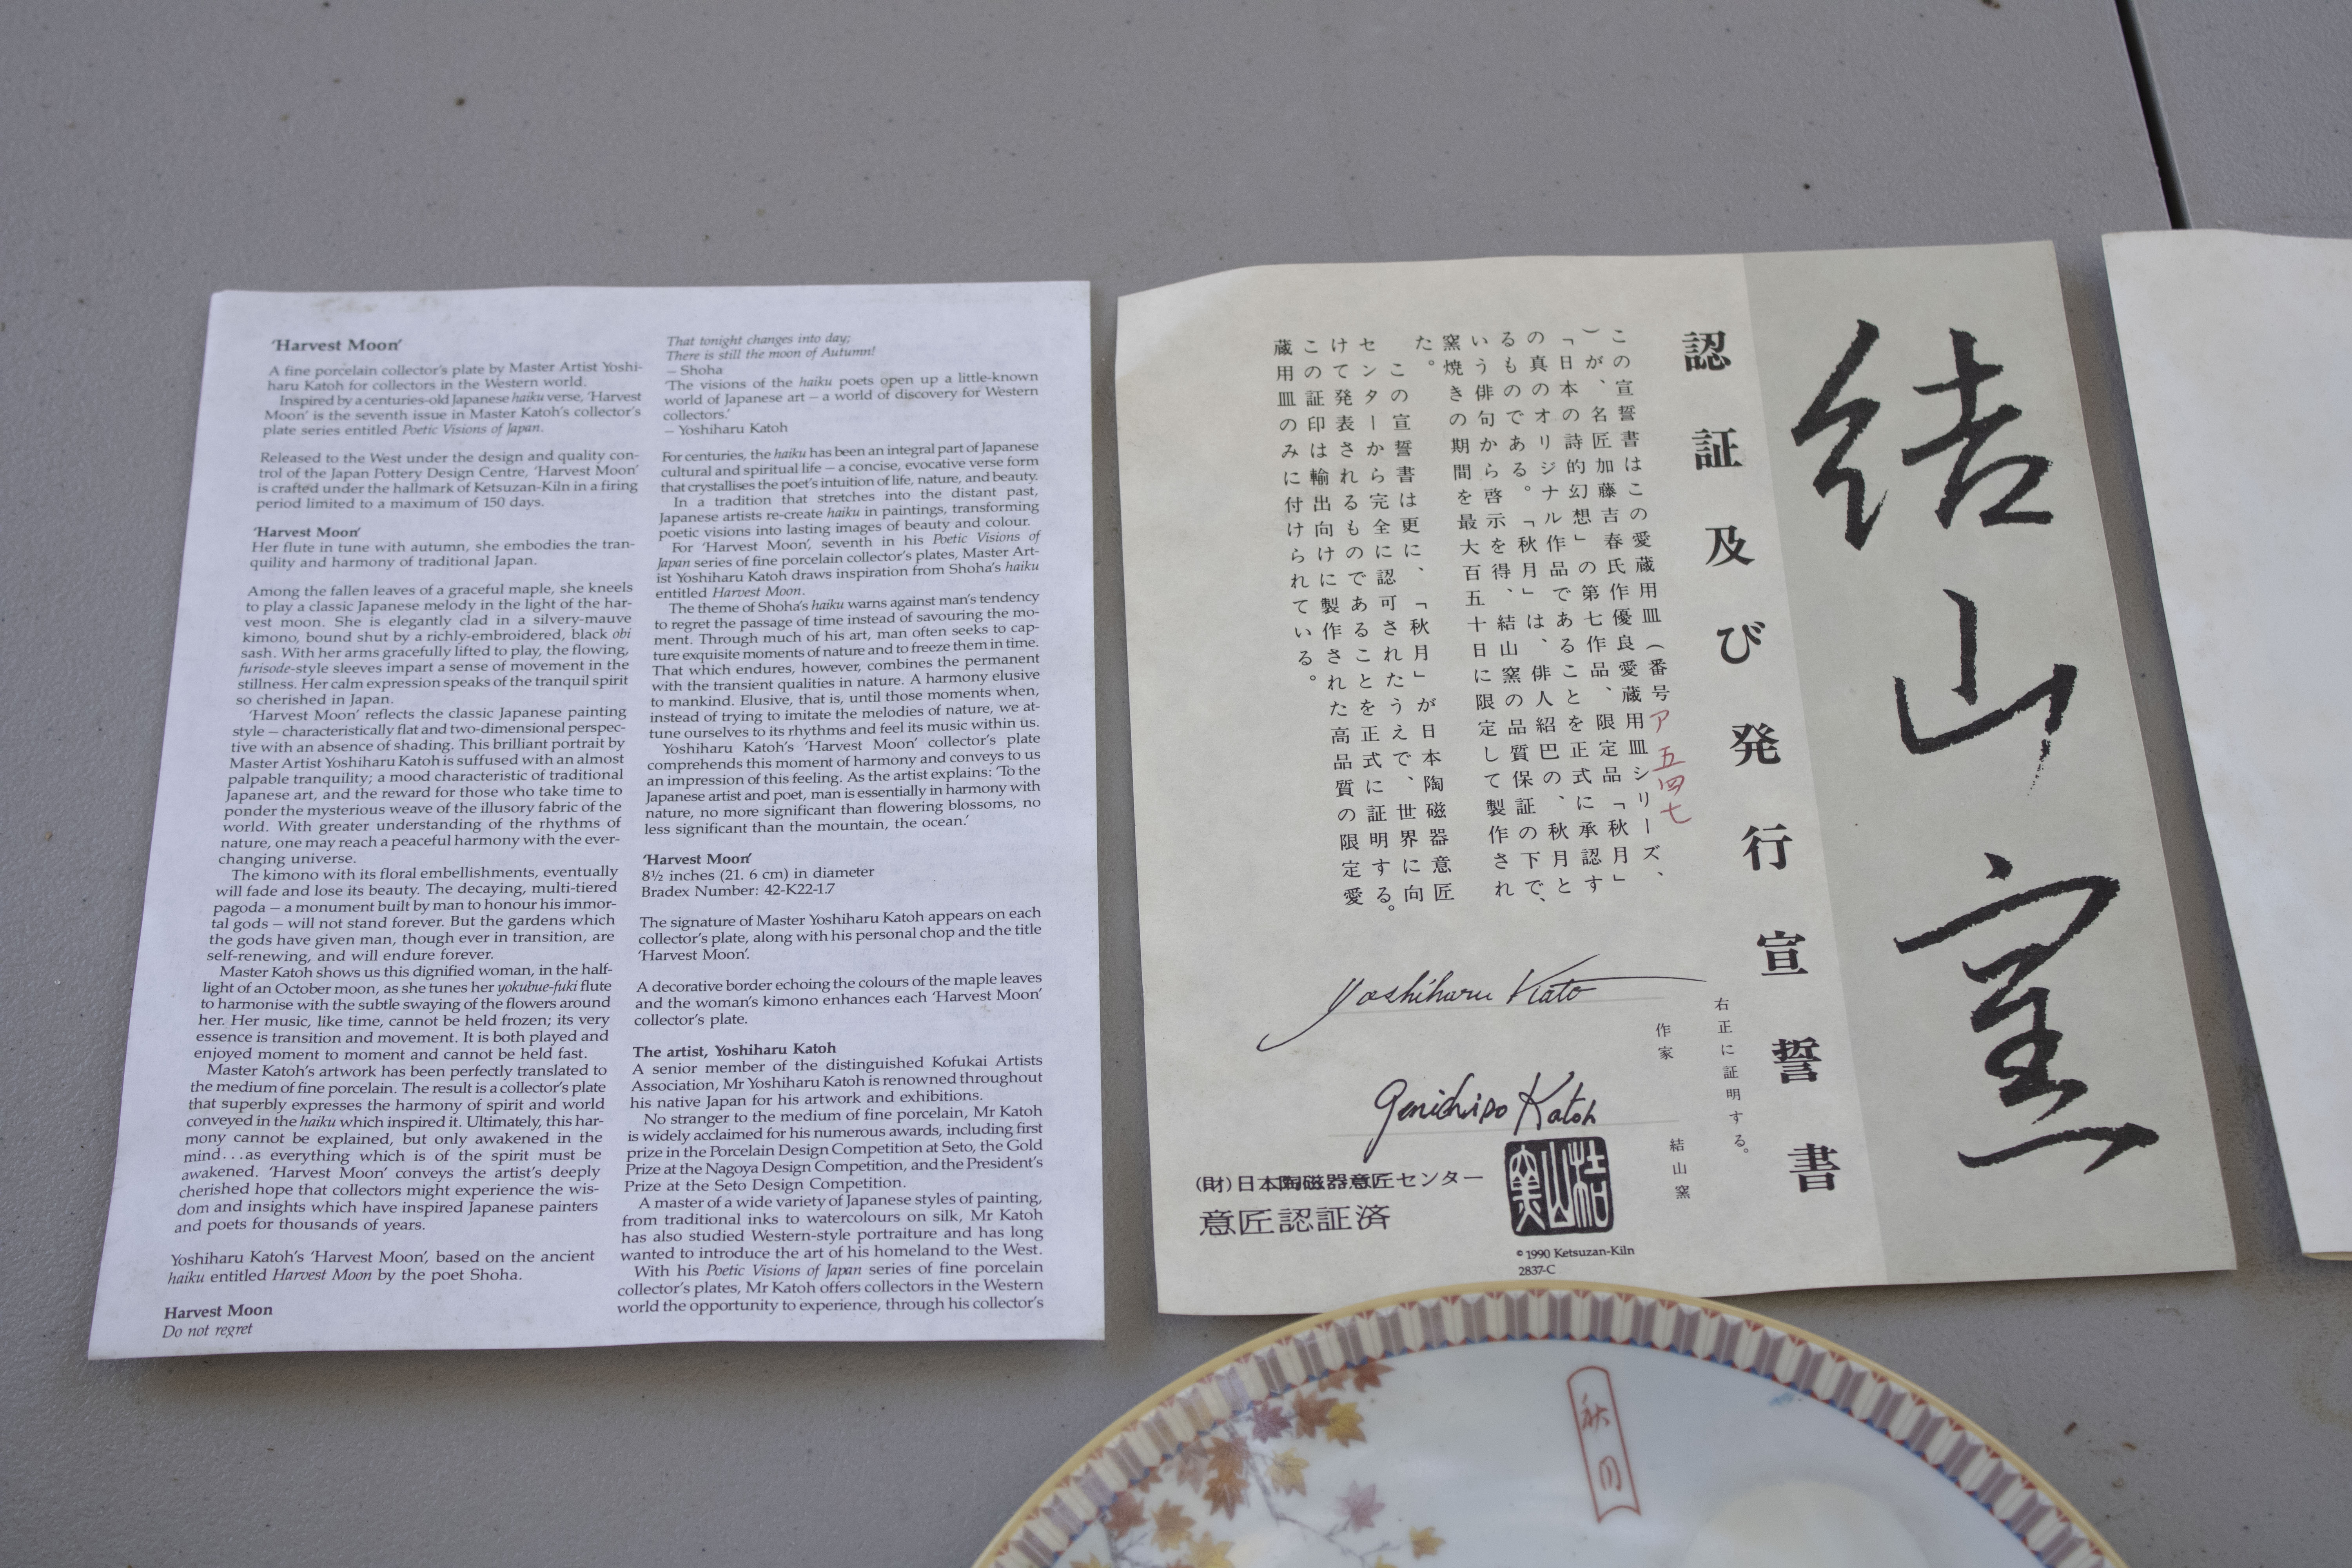 'Harvest Moon'
A fine porcelain collector's plate by Master Artist Yoshi-
haru Katoh for collectors in the Western world.
Inspired by a centuries-old Japanese haiku verse, 'Harvest
Moon' is the seventh issue in Master Katoh's collector's
plate series entitled Poetic Visions of Japan.
Released to the West under the design and quality con-
trol of the Japan Pottery Design Centre, 'Harvest Moon'
is crafted under the hallmark of Ketsuzan-Kiln in a firing
period limited to a maximum of 150 days.
'Harvest Moon'
Her flute in tune with autumn, she embodies the tran-
quility and harmony of traditional Japan.
Among the fallen leaves of a graceful maple, she kneels
to play a classic Japanese melody in the light of the har-
vest moon. She is elegantly clad in a silvery-mauve
kimono, bound shut by a richly-embroidered, black obi
sash. With her arms gracefully lifted to play, the flowing,
furisode-style sleeves impart a sense of movement in the
stillness. Her calm expression speaks of the tranquil spirit
so cherished in Japan.
'Harvest Moon' reflects the classic Japanese painting
style – characteristically flat and two-dimensional perspec-
tive with an absence of shading. This brilliant portrait by
Master Artist Yoshiharu Katoh is suffused with an almost
palpable tranquility; a mood characteristic of traditional
Japanese art, and the reward for those who take time to
ponder the mysterious weave of the illusory fabric of the
world. With greater understanding of the rhythms of
nature, one may reach a peaceful harmony with the ever-
changing universe.
The kimono with its floral embellishments, eventually
will fade and lose its beauty. The decaying, multi-tiered
pagoda – a monument built by man to honour his immor-
tal gods – will not stand forever. But the gardens which
the gods have given man, though ever in transition, are
self-renewing, and will endure forever.
Master Katoh shows us this dignified woman, in the half-
light of an October moon, as she tunes her yokubue-fuki flute
to harmonise with the subtle swaying of the flowers around
her. Her music, like time, cannot be held frozen; its very
essence is transition and movement. It is both played and
enjoyed moment to moment and cannot be held fast.
Master Katoh's artwork has been perfectly translated to
the medium of fine porcelain. The result is a collector's plate
that superbly expresses the harmony of spirit and world
conveyed in the haiku which inspired it. Ultimately, this har-
mony cannot be explained, but only awakened in the
mind...as everything which is of the spirit must be
awakened. 'Harvest Moon' conveys the artist's deeply
cherished hope that collectors might experience the wis-
dom and insights which have inspired Japanese painters
and poets for thousands of years.
Yoshiharu Katoh's 'Harvest Moon', based on the ancient
haiku entitled Harvest Moon by the poet Shoha.
Harvest Moon
Do not regret
That tonight changes into day;
There is still the moon of Autumn!
– Shoha
'The visions of the haiku poets open up a little-known
world of Japanese art – a world of discovery for Western
collectors.'
– Yoshiharu Katoh
For centuries, the haiku has been an integral part of Japanese
cultural and spiritual life – a concise, evocative verse form
that crystallises the poet's intuition of life, nature, and beauty.
In a tradition that stretches into the distant past,
Japanese artists re-create haiku in paintings, transforming
poetic visions into lasting images of beauty and colour.
For 'Harvest Moon', seventh in his Poetic Visions of
Japan series of fine porcelain collector's plates, Master Art-
ist Yoshiharu Katoh draws inspiration from Shoha's haiku
entitled Harvest Moon.
The theme of Shoha's haiku warns against man's tendency
to regret the passage of time instead of savouring the mo-
ment. Through much of his art, man often seeks to cap-
ture exquisite moments of nature and to freeze them in time.
That which endures, however, combines the permanent
with the transient qualities in nature. A harmony elusive
to mankind. Elusive, that is, until those moments when,
instead of trying to imitate the melodies of nature, we at-
tune ourselves to its rhythms and feel its music within us.
Yoshiharu Katoh's 'Harvest Moon' collector's plate
comprehends this moment of harmony and conveys to us
an impression of this feeling. As the artist explains: 'To the
Japanese artist and poet, man is essentially in harmony with
nature, no more significant than flowering blossoms, no
less significant than the mountain, the ocean.'
'Harvest Moon'
8½ inches (21. 6 cm) in diameter
Bradex Number: 42-K22-1.7
The signature of Master Yoshiharu Katoh appears on each
collector's plate, along with his personal chop and the title
'Harvest Moon'.
A decorative border echoing the colours of the maple leaves
and the woman's kimono enhances each 'Harvest Moon'
collector's plate.
The artist, Yoshiharu Katoh
A senior member of the distinguished Kofukai Artists
Association, Mr Yoshiharu Katoh is renowned throughout
his native Japan for his artwork and exhibitions.
No stranger to the medium of fine porcelain, Mr Katoh
is widely acclaimed for his numerous awards, including first
prize in the Porcelain Design Competition at Seto, the Gold
Prize at the Nagoya Design Competition, and the President's
Prize at the Seto Design Competition.
A master of a wide variety of Japanese styles of painting,
from traditional inks to watercolours on silk, Mr Katoh
has also studied Western-style portraiture and has long
wanted to introduce the art of his homeland to the West.
With his Poetic Visions of Japan series of fine porcelain
collector's plates, Mr Katoh offers collectors in the Western
world the opportunity to experience, through his collector's
結山窯
認証及び発行宣誓書
この宣誓書はこの愛蔵用皿(番号ア五四七
)が、名匠加藤吉春氏作優良愛蔵用皿シリーズ、
「日本の詩的幻想」の第七作品、限定品「秋月」
の真のオリジナル作品であることを正式に承認す
るものである。「秋月」は、俳人紹巴の、秋月と
いう俳句から啓示を得、結山窯の品質保証の下で、
窯焼きの期間を最大百五十日に限定して製作され
た。
この宣誓書は更に、「秋月」が日本陶磁器意匠
センターから完全に認可されたうえで、世界に向
けて発表されるものであることを正式に証明する。
この証印は輸出向けに製作された高品質の限定愛
蔵用皿のみに付けられている。
右正に証明する。
作家
Yoshiharu Kato
結山窯
Genichiro Katoh
(財)日本陶磁器意匠センター
意匠認証済
結山窯
© 1990 Ketsuzan-Kiln
2837-C
秋月